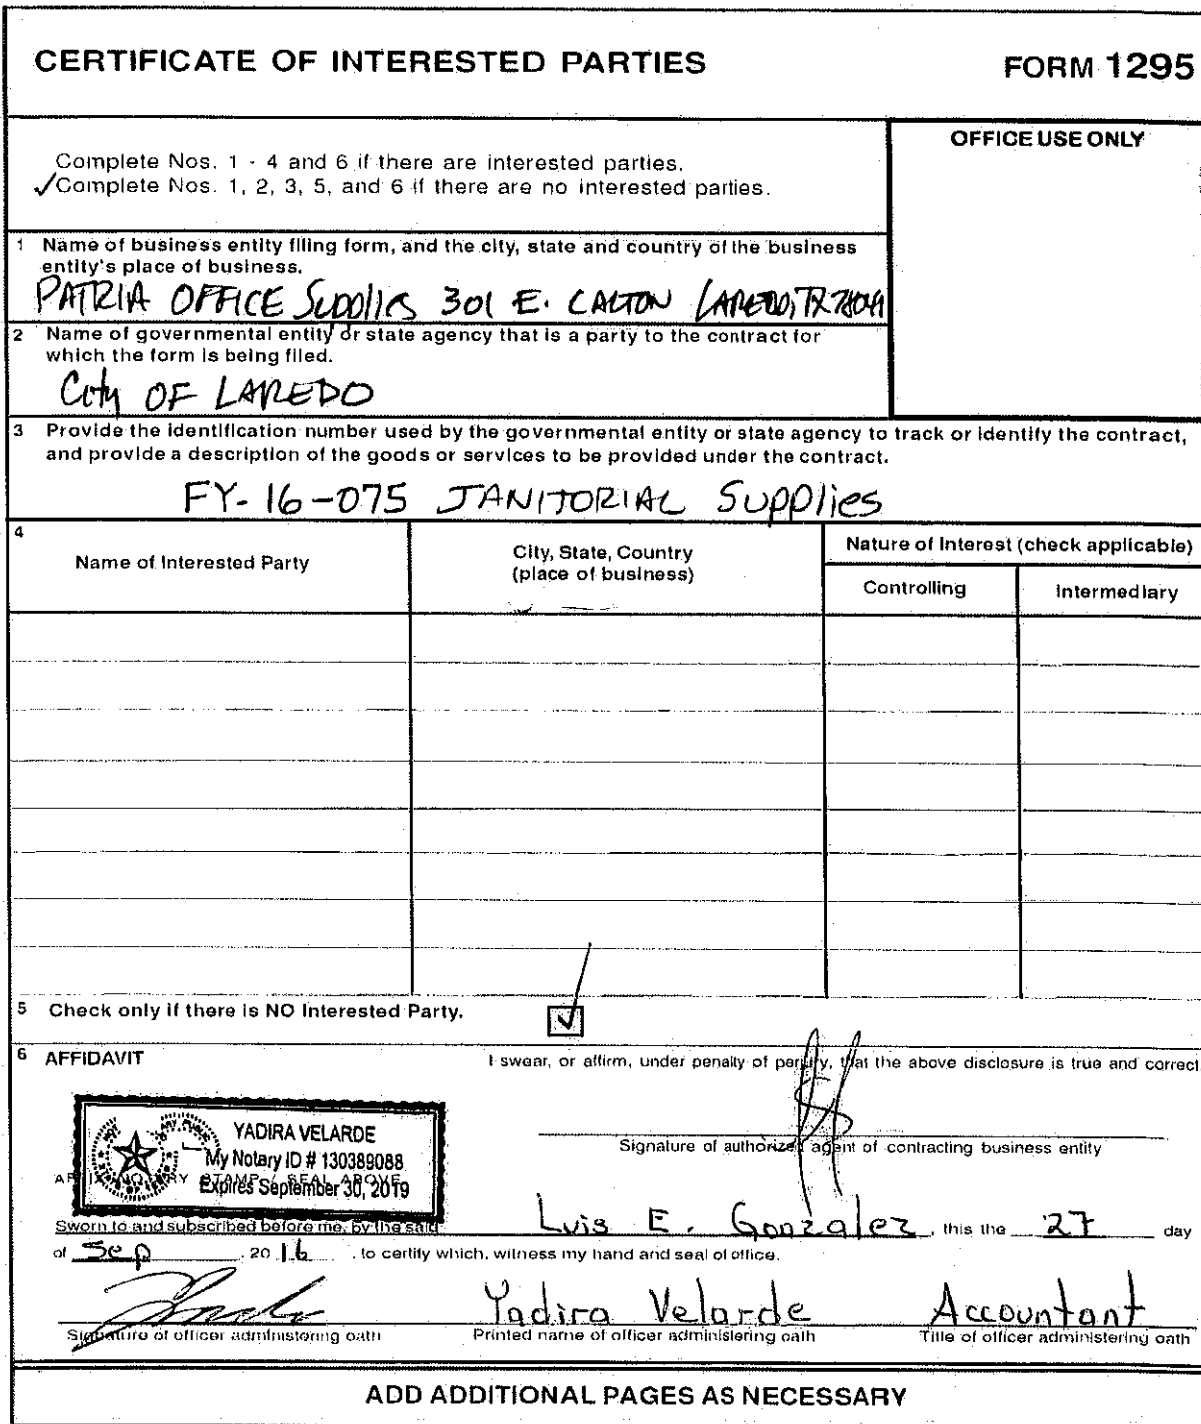 CERTIFICATE OF INTERESTED PARTIES FORM 1295
OFFICE USE ONLY
Complete Nos. 1 - 4 and 6 if there are interested parties.
✓Complete Nos. 1, 2, 3, 5, and 6 if there are no interested parties.
1 Name of business entity filing form, and the city, state and country of the business
entity's place of business.
PATRIA OFFICE Supplies 301 E. CALTON LAREDO, TX 78041
2 Name of governmental entity or state agency that is a party to the contract for
which the form is being filed.
City OF LAREDO
3 Provide the identification number used by the governmental entity or state agency to track or identify the contract,
and provide a description of the goods or services to be provided under the contract.
FY-16-075 JANITORIAL Supplies
4
Name of Interested Party
City, State, Country
(place of business)
Nature of Interest (check applicable)
Controlling
Intermediary
5 Check only if there is NO Interested Party. ✓
6 AFFIDAVIT
I swear, or affirm, under penalty of perjury, that the above disclosure is true and correct
YADIRA VELARDE
My Notary ID # 130389088
Expires September 30, 2019
AFFIX NOTARY STAMP / SEAL ABOVE
Signature of authorized agent of contracting business entity
Sworn to and subscribed before me, by the said Luis E. Gonzalez, this the 27 day
of Sep, 20 16, to certify which, witness my hand and seal of office.
Yadira Velarde
Accountant
Signature of officer administering oath
Printed name of officer administering oath
Title of officer administering oath
ADD ADDITIONAL PAGES AS NECESSARY